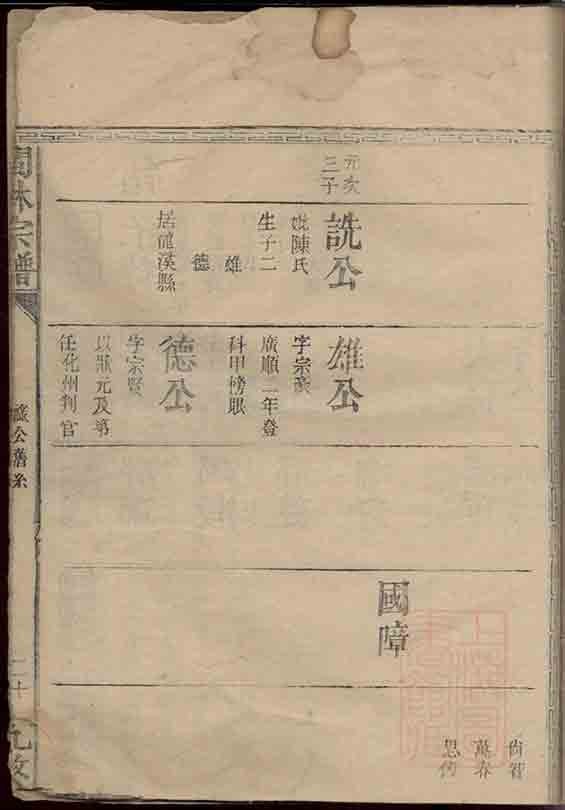 元次
三子
詵公
妣陳氏
生子二
雄
德
居龍溪縣
雄公
字宗
廣順二年登
科甲榜眼
德公
字宗賢
以狀元及第
任化州判官
國璋
尚智
萬春
林宗譜
公舊系
二十